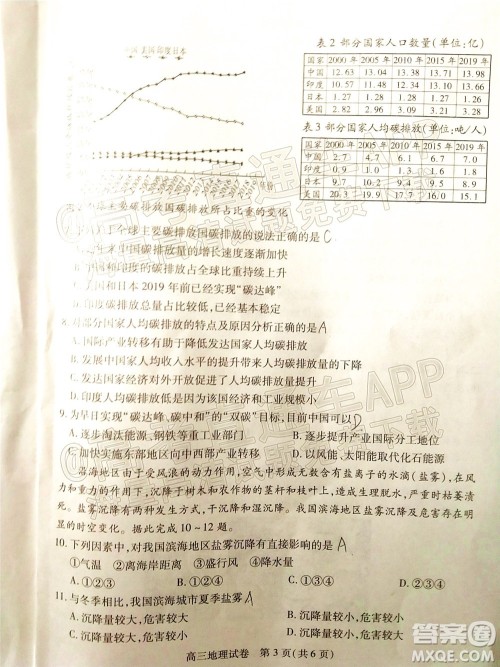 美国 印度 日本
表2 部分国家人口数量(单位:亿)
国家 2000年 2005年 2010年 2015年 2019年
中国 12.63 13.04 13.38 13.71 13.98
印度 10.57 11.48 12.34 13.10 13.66
日本 1.27 1.28 1.28 1.27 1.26
美国 2.82 2.96 3.09 3.21 3.28
表3 部分国家人均碳排放(单位:吨/人)
国家 2000年 2005年 2010年 2015年 2019年
中国 2.7 4.7 6.1 6.7 7.0
印度 0.9 1.0 1.4
日本
美国 20.3 19.9 17.7
主要碳排放国碳排放所占比重的变化
7.下列关于全球主要碳排放国碳排放的说法正确的是C
A.中国碳排放量的增长速度逐渐加快
B.中国和印度的碳排放占全球比重持续上升
C.美国和日本2019年前已经实现“碳达峰”
D.印度碳排放总量占比较低,已经基本稳定
8.对部分国家人均碳排放的特点及原因分析正确的是A
A.国际产业转移有助于降低发达国家人均碳排放
B.发展中国家人均收入水平的提升带来人均碳排放量的下降
C.发达国家经济对外开放促进了其人均碳排放的提升
D.印度人均碳排放低是因为该国经济规模小
9.为早日实现“碳达峰、碳中和”的“双碳”目标,目前中国可以D
A.逐步淘汰能源、钢铁等重工业部门
B.逐步提升产业国际分工地位
C.加快实施东部地区向中西部产业转移
D.以风能、太阳能取代化石能源
滨海地区由于受风浪的动力作用,空气中形成无数含有盐离子的水滴(盐雾),伴随着
盐雾的扩散和沉降过程,沉积于树木和农作物的茎杆和枝叶表面,严重时可导致植被枯萎死
亡。盐雾沉降有两种发生方式,干沉降和湿沉降。我国滨海地区盐雾沉降存在着较明
显的时空变化。据此完成10~12题。
10.下列因素中,对我国滨海地区盐雾沉降有直接影响的是A
①气温 ②离海岸距离 ③盛行风 ④降水量
A.①②③
B.①②④
C.①③④
D.②③④
11.与冬季相比,我国滨海城市夏季盐雾A
A.沉降量较大,危害较大
B.沉降量较小,危害较小
C.沉降量较大,危害较小
D.沉降量较小,危害较大
高三地理试卷 第3页(共6页)
答案圈
MXQE.COM